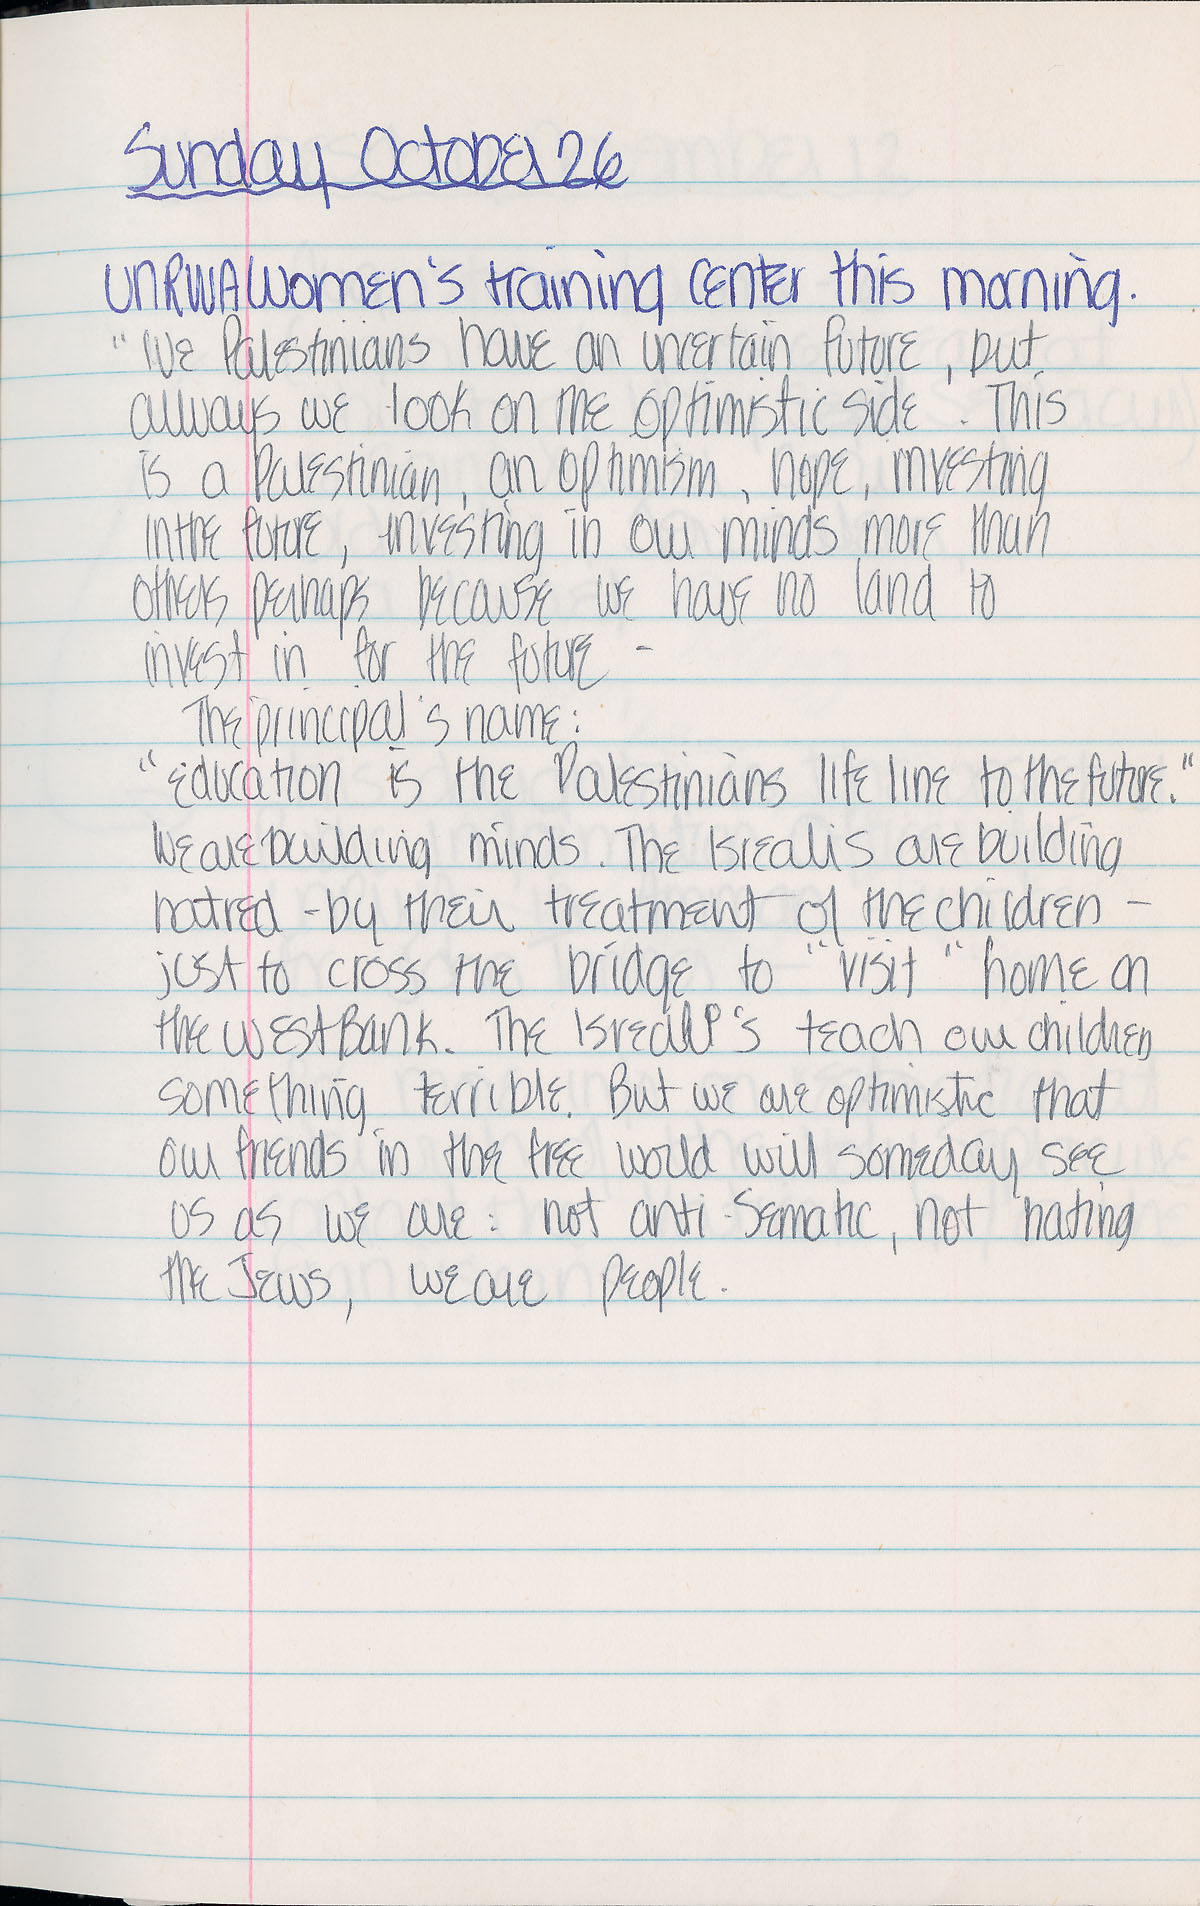 Sunday October 26
UNRWA Women's training center this morning.
"We Palestinians have an uncertain future, but
allways we look on the optimistic side. This
is a Palestinian, an optimism, hope, investing
in the future, investing in our minds more than
others perhaps because we have no land to
invest in for the future -
The principal's name:
"education is the Palestinians life line to the future."
We are building minds. The Isrealis are building
hatred - by their treatment of the children -
just to cross the bridge to "visit" home on
the West Bank. The 's teach our children
something terrible. But we are optimistic that
our friends in the free world will someday see
us as we are: not anti-Sematic, not hating
the Jews, we are people.